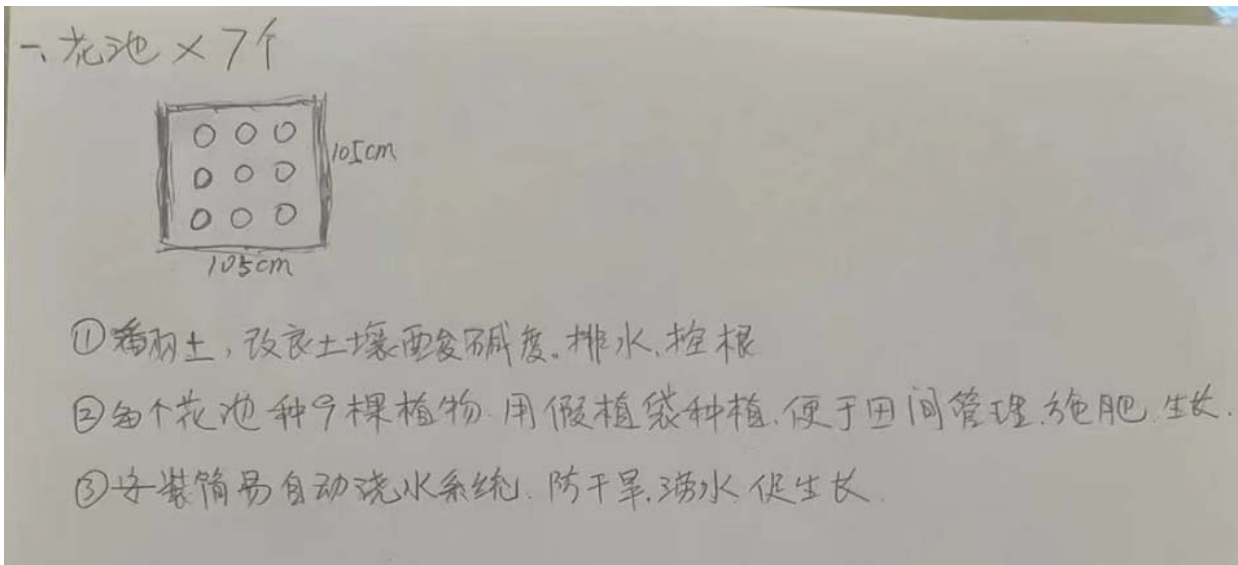 一、花池×7个
105cm
105cm
①翻土,改良土壤酸碱度。排水.控根
②每个花池种9棵植物.用假植袋种植.便于田间管理.施肥.生长.
③安装简易自动浇水系统.防干旱.涝水.促生长.